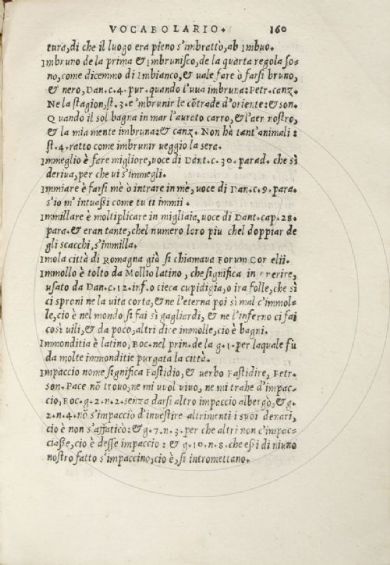 VOCABOLARIO. 160
tura, di che il luogo era pieno s'imbrattò, ab Imbuo.
Imbruno de la prima & Imbrunisco, de la quarta regola so=
no, come dicemmo di Imbianco, & uale fare ò farsi bruno,
& nero, Dan. c. 4. pur. quando l'uua imbruna: Petr. canz.
Ne la stagion, st. 3. e'mbrunir le cōtrade d'oriente: & son.
Quando il sol bagna in mar l'aureto carro, & l'aer nostro,
& la mia mente imbruna: & canz. Non hà tant'animali:
st. 4. ratto come imbrunir ueggio la sera.
Immeglio è fare migliore, uoce di Dant. c. 30. parad. che sì
deriua, per che ui s'immegli.
Immiare è farsi mè ò intrare in mè, uoce di Dan. c. 9. para.
s'io m'intuassi come tu ti immii.
Immillare è moltiplicare in migliaia, uoce di Dant. cap. 28.
para. & eran tante, chel numero loro piu chel doppiar de
gli scacchi, s'immilla.
Imola città di Romagna già si chiamaua Forum Cor elii.
Immollo è tolto da Mollio latino, che significa in erire,
usato da Dan. c. 12. inf. o cieca cupidigia, o ira folle, che sì
ci sproni ne la uita corta, & ne l'eterna poi sì mal c'immol=
le, cio è nel mondo si fai sì gagliardi, & ne l'inferno ci fai
così uili, & da poco, altri dice immolle, cio è bagni.
Immonditia è latino, Boc. nel prin. de la g. 1. per laquale fu
da molte immonditie purgata la città.
Impaccio nome significa Fastidio, & uerbo Fastidire, Petr.
son. Pace nō trouo, ne mi uuol uiuo, ne mi trahe d'impac=
cio, Boc. g. 2. n. 2. senza darsi altro impaccio albergò, & g.
2. n. 4. nō s'impacciò d'inuestire altrimenti i suoi denari,
cio è non s'affaticò: & g. 7. n. 3. per che altri non c'impac=
ciasse, cio è desse impaccio: & g. 10. n. 8. che essi di niuno
nostro fatto s'impaccino, cio è, si intromettano.